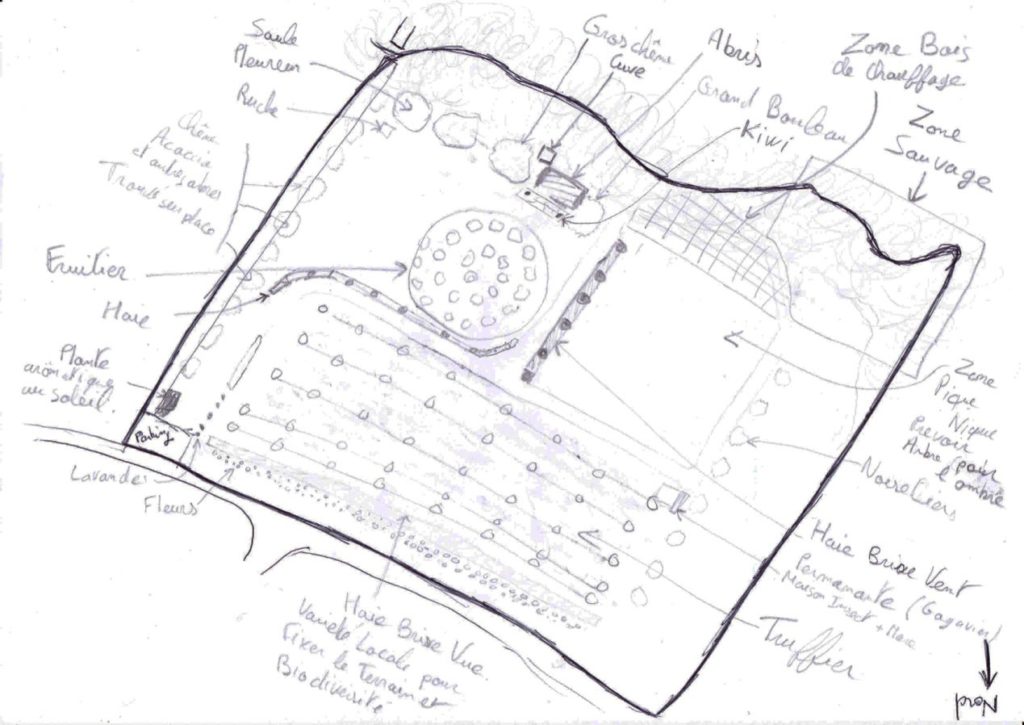 Saule
Pleureur
Ruche
Chêne
Acacia
et autres arbres
Trouvés sur place
Fruitier
Haie
Plante
arômatique
au soleil.
Parking
Lavandes
Fleurs
Gros chêne
Cuve
Abris
Grand Bouleau
Kiwi
Zone Bois
de Chauffage
Zone
Sauvage
Zone
Pique
Nique
Prevoir
Arbre pour
l'ombre
Noisetiers
Haie Brise Vent
Permanante
Maison Insect + Mare
Truffier
Haie Brise Vue
Variété Locale pour
Fixer le Terrain et
Biodiversité
Nord